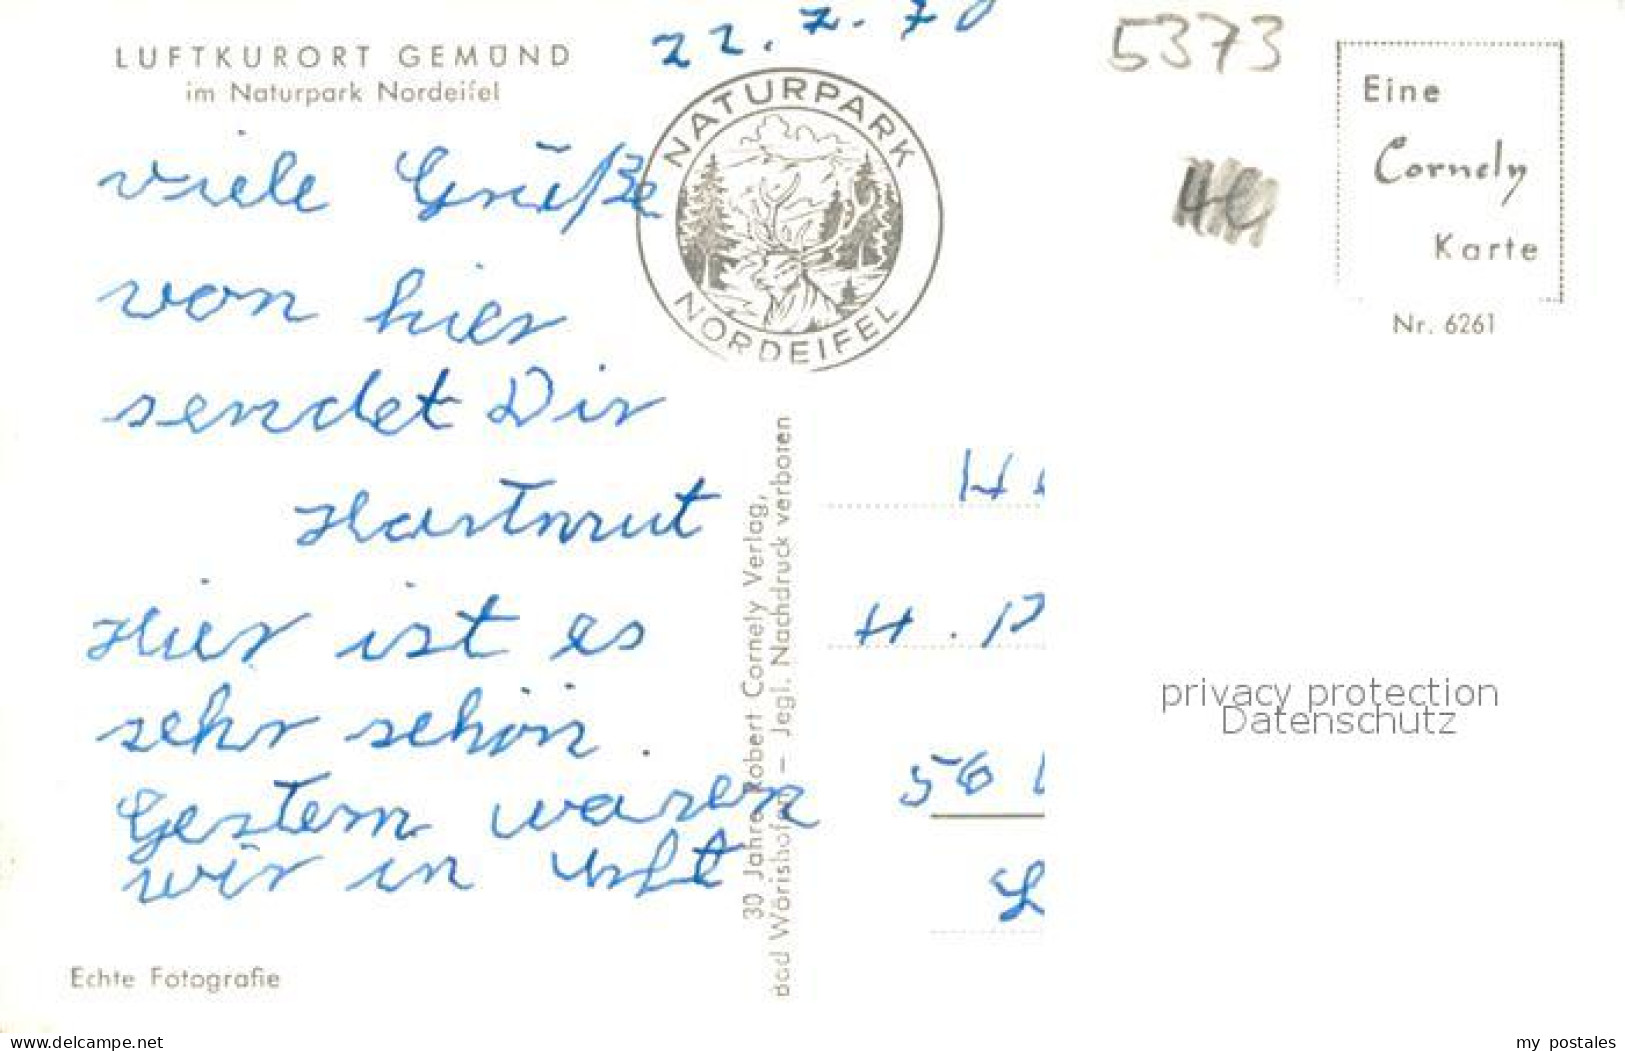 22.7.70
5373
LUFTKURORT GEMÜND
im Naturpark Nordeifel
NATURPARK
NORDEIFEL
Eine
Cornely
Karte
Nr. 6261
viele Grüße
von hier
sendet Dir
Hartmut
Hier ist es
sehr schön.
Gestern waren
wir in Urft
30 Jahre Robert Cornely Verlag,
Bad Wörishofen – Jegl. Nachdruck verboten
H
H. P
56
L
privacy protection
Datenschutz
Echte Fotografie
www.delcampe.net
my_postales